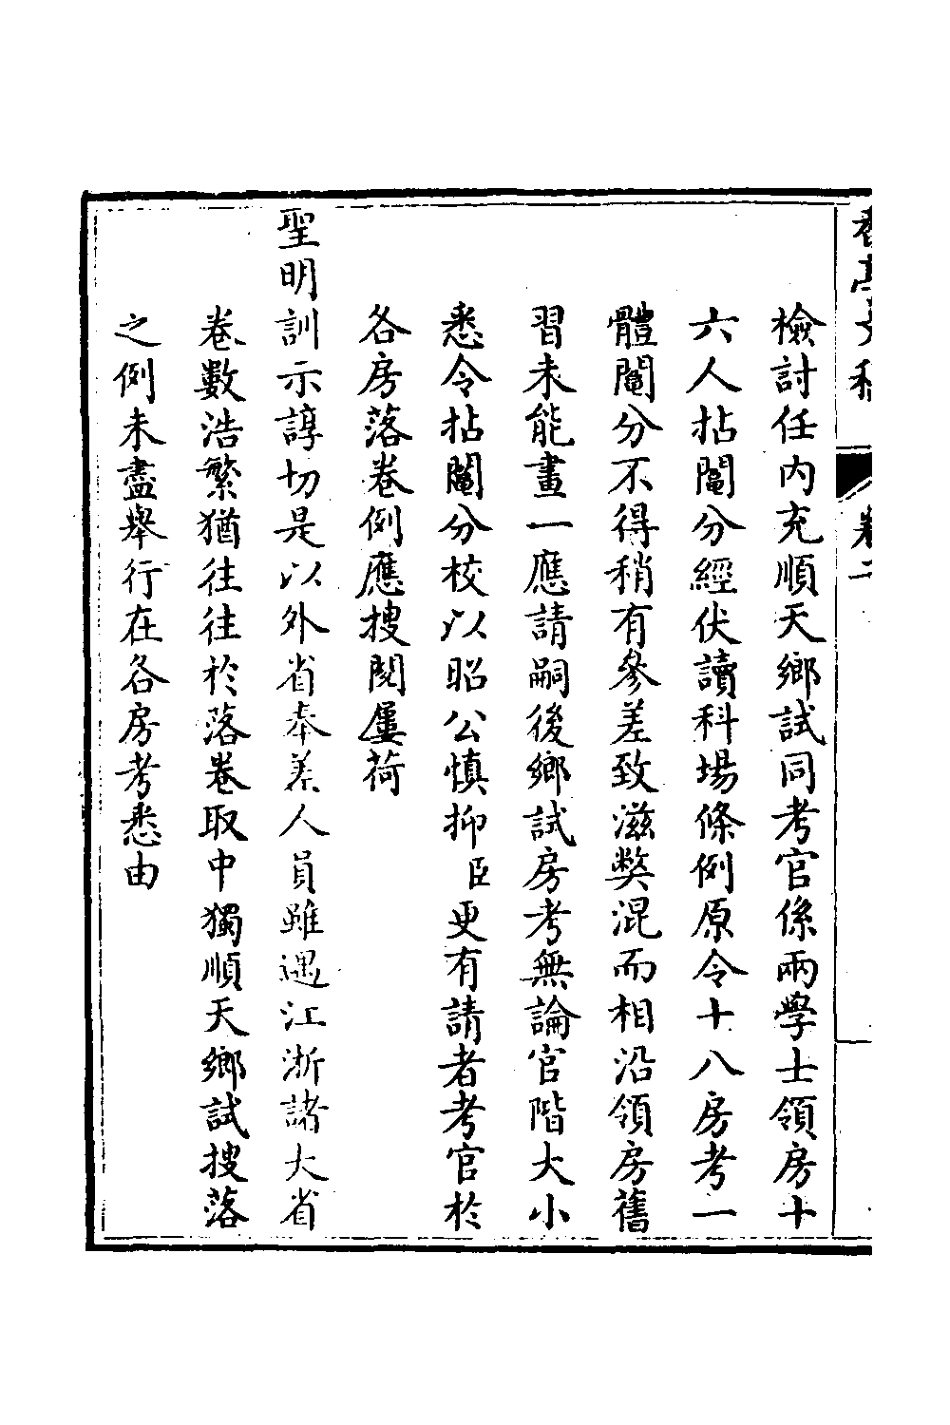 檢討任內充順天鄉試同考官係兩學士領房十
六人拈鬮分經伏讀科場條例原令十八房考一
體鬮分不得稍有參差致滋弊混而相沿領房舊
習未能畫一應請嗣後鄉試房考無論官階大小
悉令拈鬮分校以昭公慎抑臣更有請者考官於
各房落卷例應搜閱屢荷
聖明訓示諄切是以外省奉差人員雖遇江浙諸大省
卷數浩繁猶往往於落卷取中獨順天鄉試搜落
之例未盡舉行在各房考悉由